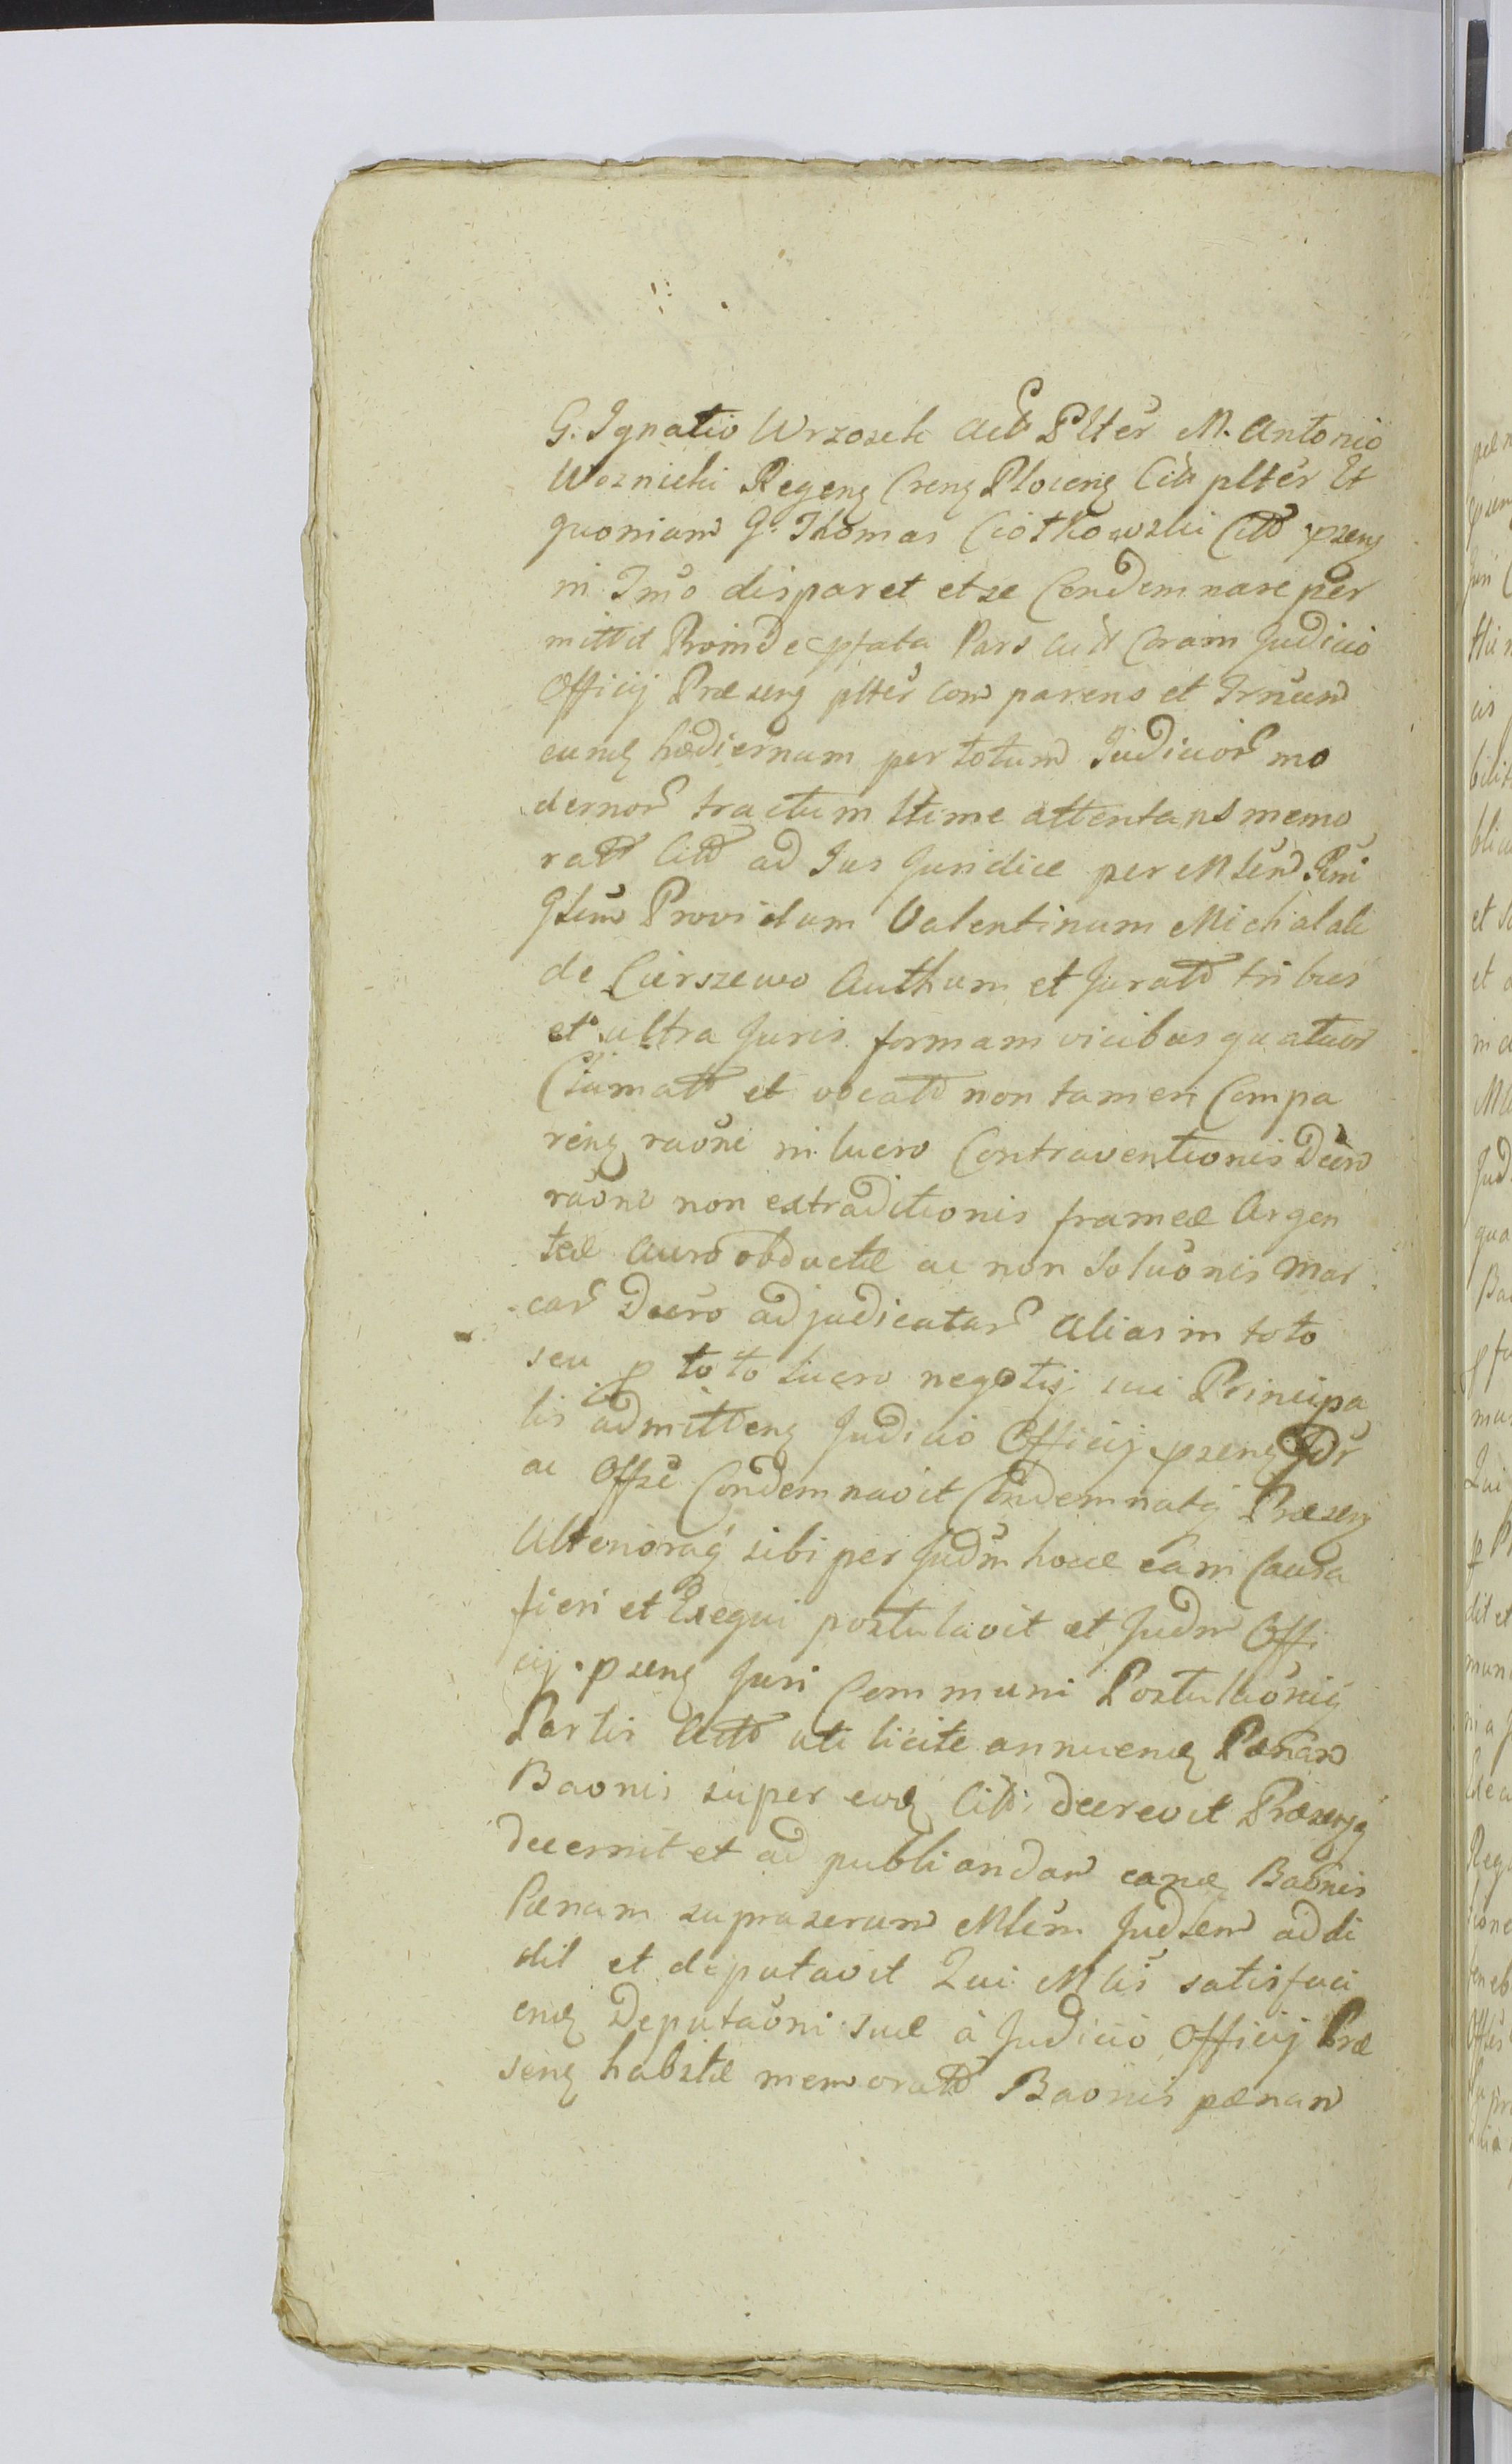 G. Ignatio Wrzosek Act Plter M. Antonio
Woznicki Regenz Crenz Plocenz Citt plter Et
quoniam G. Thomas Ciotkowski Citt pzenz
in Tmo disparet et se Condemnare per
mittit Proinde pfata Pars Actt Coram Judicio
Officij Præsenz plter comparens et Trnum
eunđ hodiernum per totum Judicior mo
dernor tractum ltime attentans memo
ratt Citt ad Jus Juridice per Mlem Rni
Glem Providum Valentinum Michalak
de Cierszewo Authum et Juratt tribus
et ultra Juris formam vicibus quatuor
Clamatt et vocatt non tamen Compa
renz raone in lucro Contraventionis Decro
raone non extraditionis frameæ Argen
teæ Auro obductæ ac non Soluonis Mar
car Decro adjudicatar Alias in toto
seu p toto lucro negotij sui Principa
lis admittenz Judicio Officij pzenz Jdr
ac Offse Condemnavit Condemnatq Præsenz
Ulterioraq sibi per Judm hocce eam Causa
fieri et Exequi postulavit et Judm Offi
cij pzenz Juri Communi Postulaoniq
Partis Actt uti licite annuenđ Pænam
Baonis super eođ Citt decrevit Præsenzq
decernit et ad publicandam eanđ Baonis
Pænam suprascrum Mlem Judlem addi
dit et deputavit Qui Mlis satisfaci
enđ Deputaoni suæ à Judicio Officij Præ
senz habitæ memoratt Baonis pænam